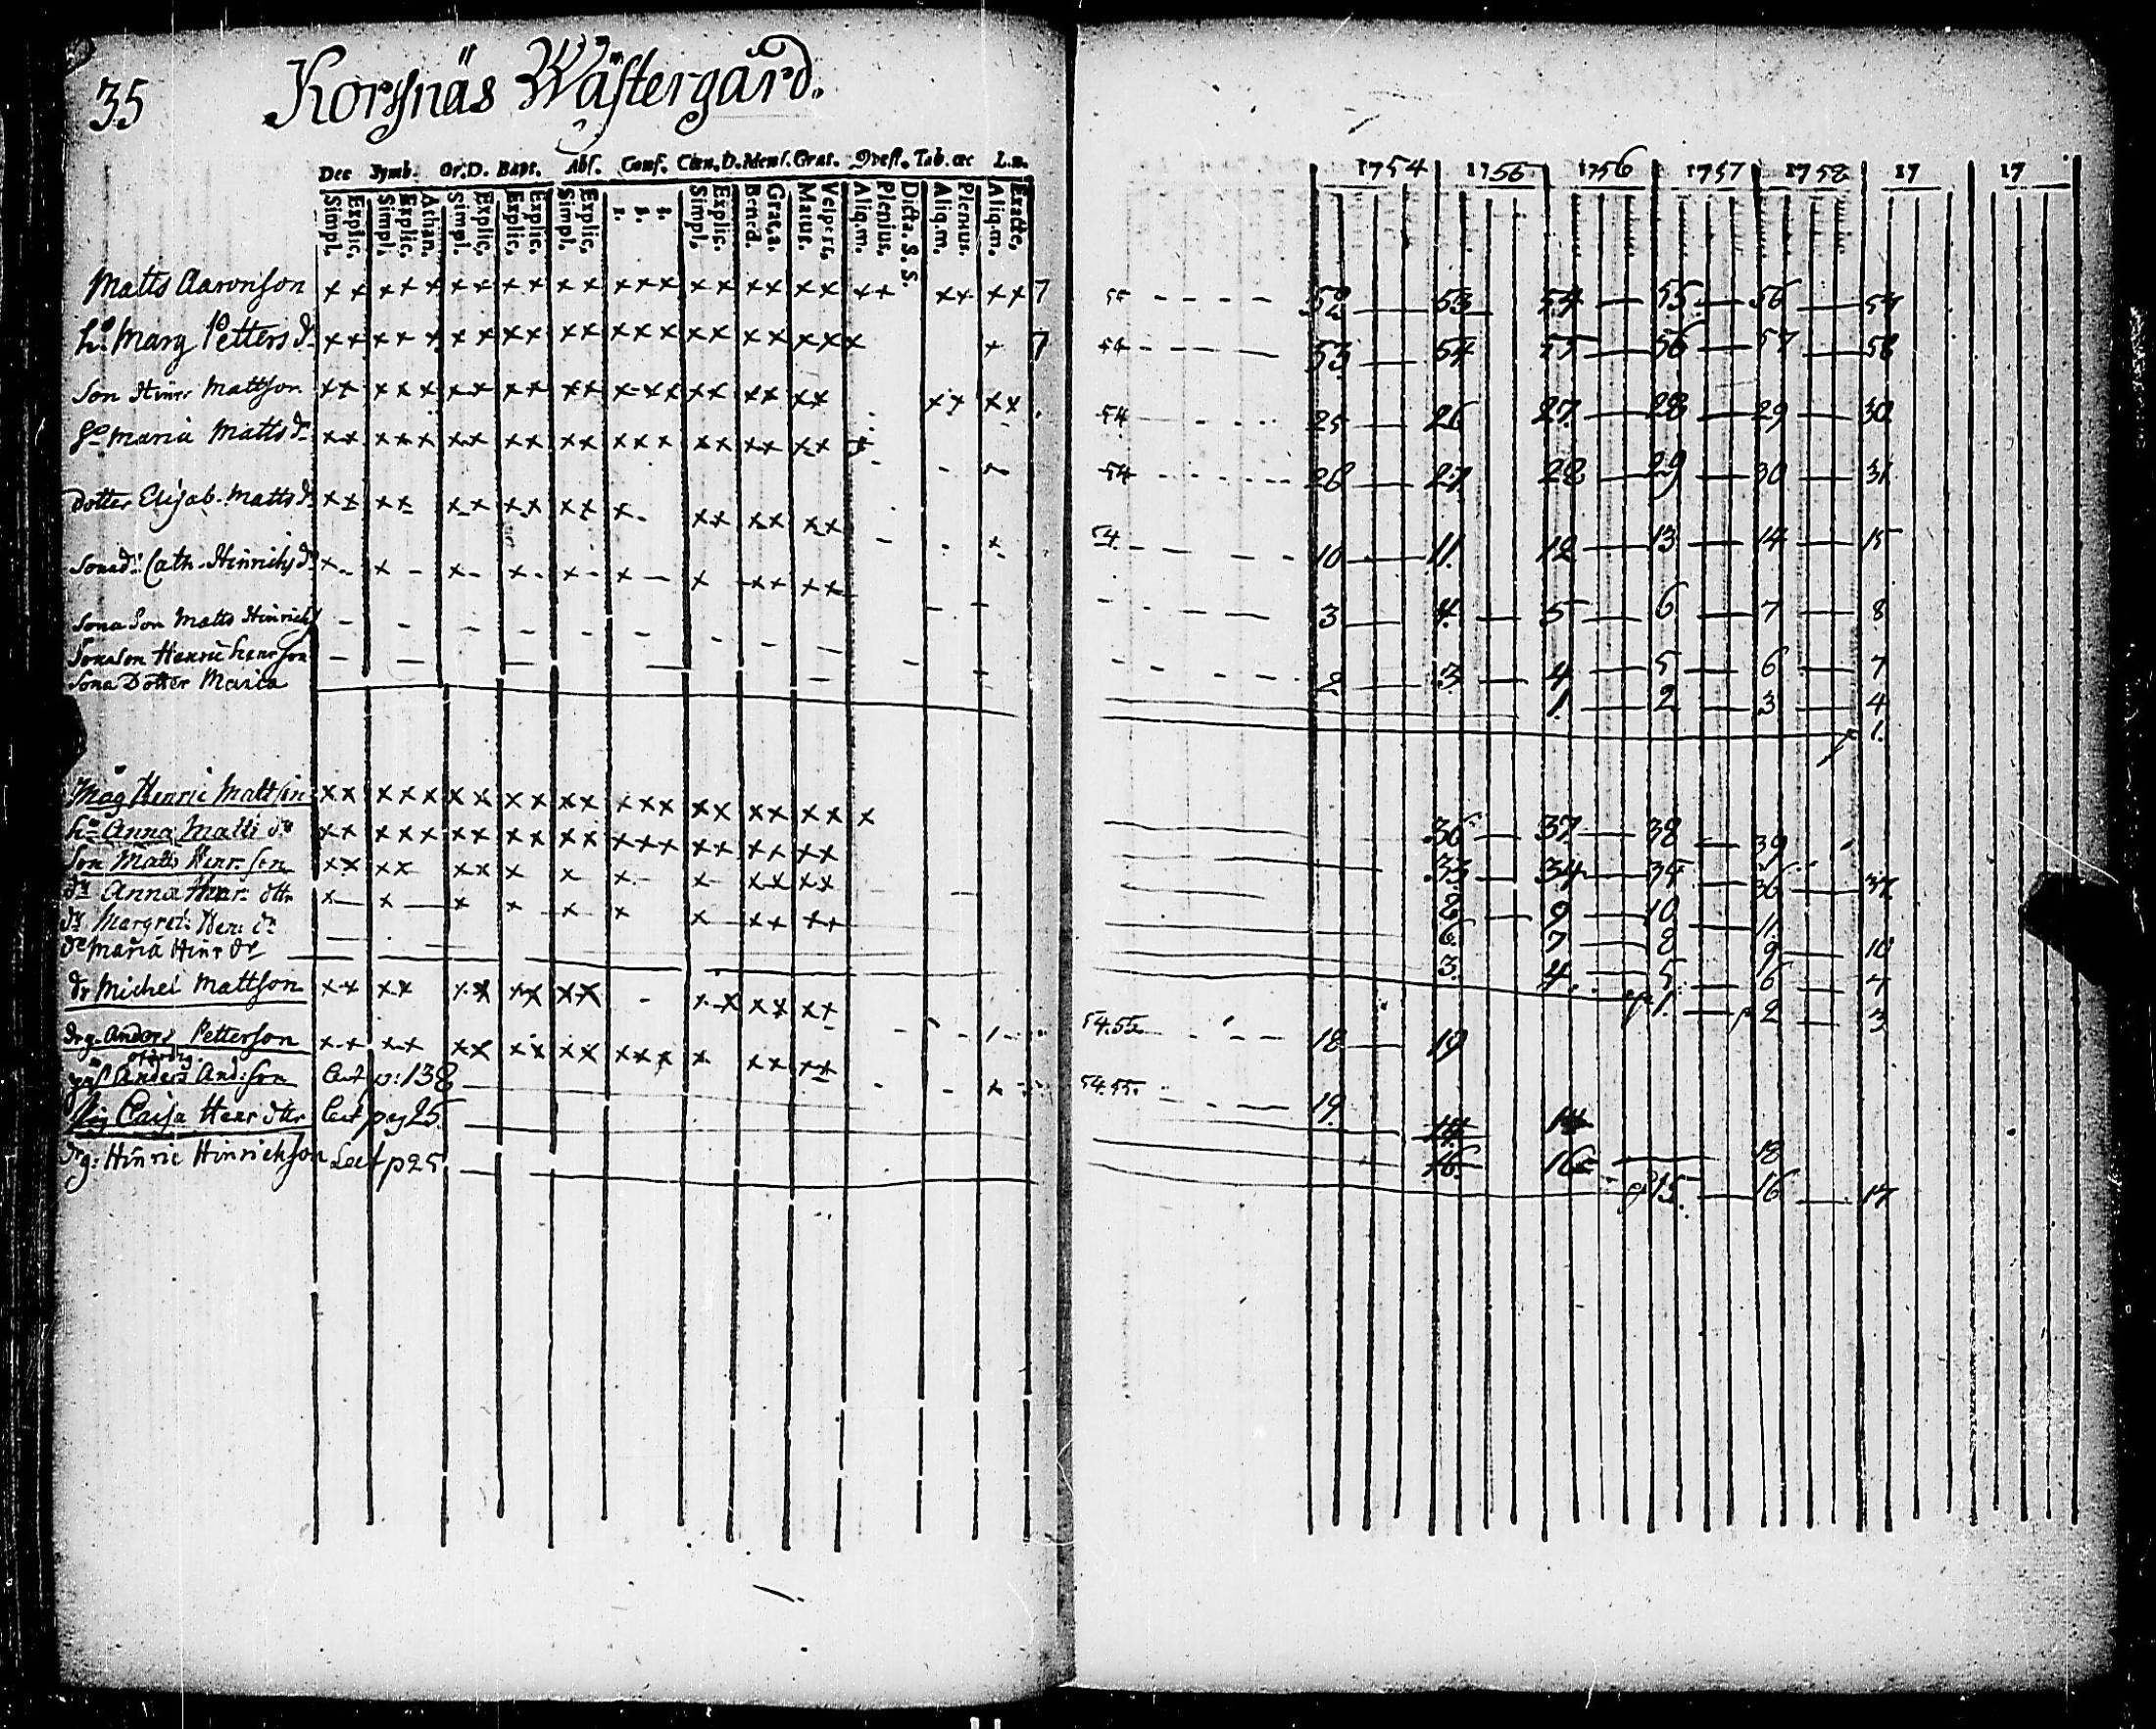 35 Korssnäs Wästergård.
Dec Symb. Or.D. Bapt. Abs. Conf. Cœn.D. Mens. Grat. Qvest. Tab. œc L.n.
Simpl. Explic. Simpl. Explic. Athan. Simpl. Explic. Explic. Explic. Simpl. Explic. 1. 2. 3. Simpl. Explic. Bened. Grat.a. Matut. Vespert. Aliq.m. Plenius. Dicta. S. S. Aliq.m. Plenius. Aliq.m. Exacte.
1754 1755 1756 1757 1758 17 17
Matts Aaronson x x x x x x x x x x x x x x x x x x x x x x x x x 7 52 53 54 55 56 57
h:o Marg Petters dr x x x x x x x x x x x x x x x x x x x x x 7 54 53 54 55 56 57 58
Son Hinr Mattson x x x x x x x x x x x x x x x x x x x x x x x 54 25 26 27 28 29 30
h:o Maria Matts dr x x x x x x x x x x x x x x x x x x x x 54 26 27 28 29 30 31
dotter Elisab. Matts dr x x x x x x x x x x x x x x x x x x 54. 10 11 12 13 14 15
Sonad:r Cath. Hinrichs dr x x x x x x x x x x x 3 4 5 6 7 8
Sona Son Matts Hinrichs
Sonason Henric Henrson 2 3 4 5 6 7
Sona Dotter Maria 1 2 3 4
1.
Måg Henric Mattson x x x x x x x x x x x x x x x x x x x x x 36 37 38 39
h:o Anna Matts dr x x x x x x x x x x x x x x x x x x x x 33 34 35 36 37
Son Matts Henr. son x x x x x x x x x x x x x x x 8 9 10 11
dr Anna Henr. dttr x x x x x x x x x x x 6 7 8 9 10
dr Margret. Henr dr 3 4 5 6 7
dr Maria Hinr dr 1. 2 3
dr Michel Mattson x x x x x x x x x x x x x x x x 54.55 18 19
drg. Anders Petterson x x x x x x x x x x x x x x x x x x x 54.55. 19
ofärdig
gås Anders And:son Lect p: 138 14 14
Pig Caisa Henr dttr Lect pag 25. 16 16 18
drg: Hinric Hinrichson Lect p 25 15. 16 17